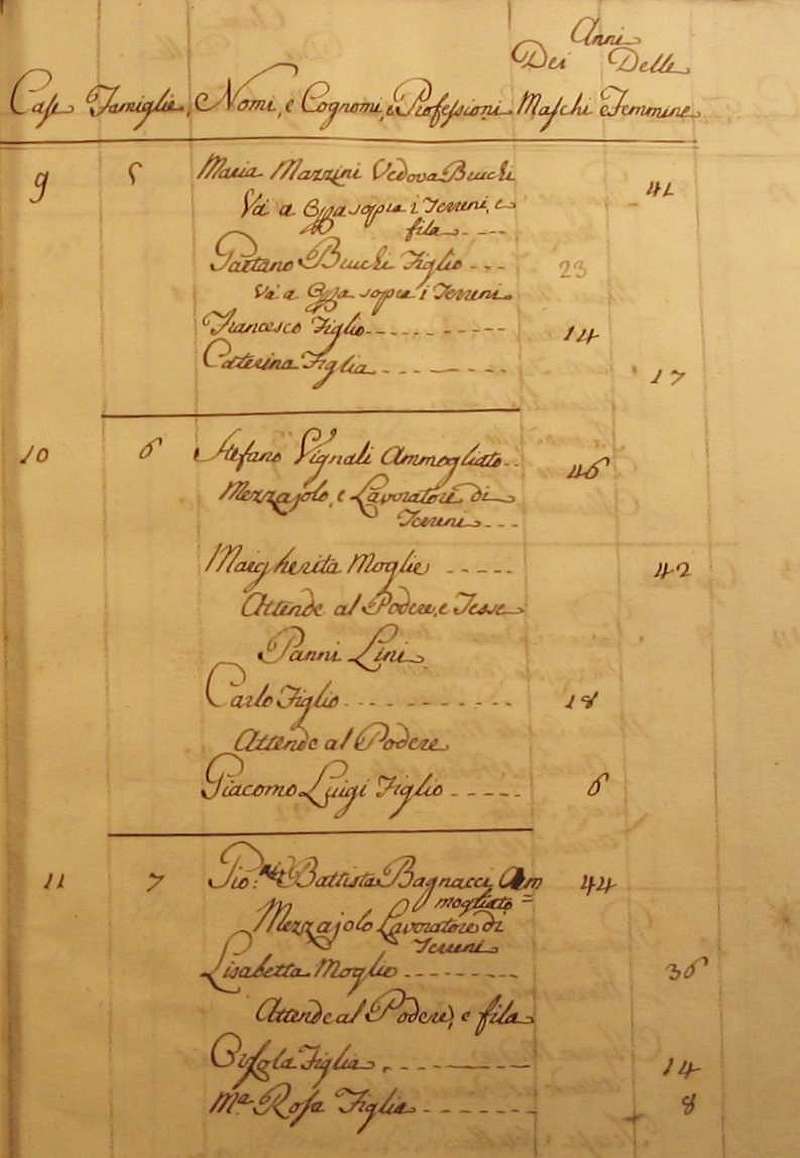 Anni
Dei Delle
Case Famiglie, Nomi, e Cognomi, e Professioni Maschi e Femmine
9 5 Maria Mazzini Vedova 41
Và a Opra sopra i Terreni, e
fila
Gaetano Figlio 23
Và a Opra sopra i Terreni
Francesco Figlio 14
Catterina Figlia 17
10 6 Stefano Vignali Ammogliato 46
Mezzajolo, e Lavoratore di
Terreni
Margherita Moglie 42
Attende al Podere, e Tesse
Panni Lini
Carlo Figlio 18
Attende al Podere
Giacomo Luigi Figlio 6
11 7 Gio: Battista Bagnacci Am 44
mogliato =
Mezzajolo Lavoratore di
Terreni
Lisabetta Moglie 36
Attende al Podere, e fila
Figlia 14
Mª Rosa Figlia 8